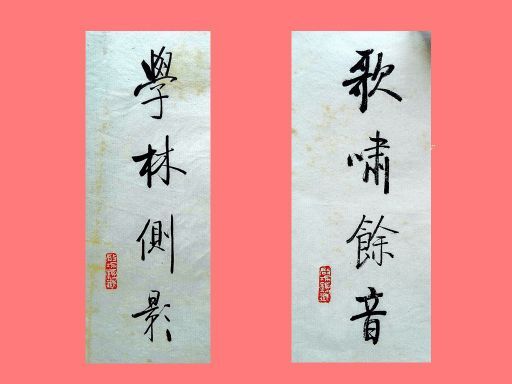 歌嘯餘音
學林側影